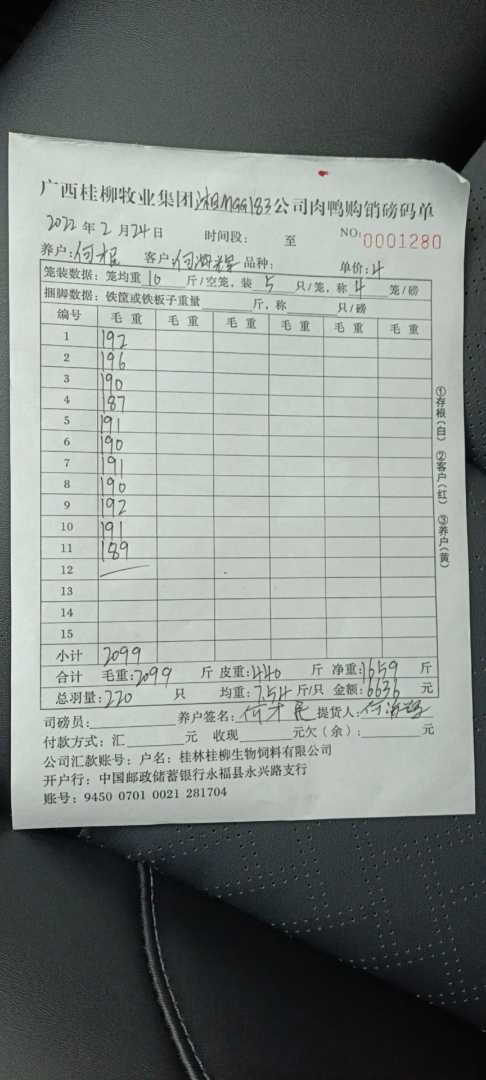 广西桂柳牧业集团 公司肉鸭购销磅码单
2022年2月24日 时间段: 至 NO:0001280
养户:何根 客户:何 品种: 单价:4
笼装数据:笼均重10斤/空笼,装5只/笼,称4笼/磅
捆脚数据:铁筐或铁板子重量 斤,称 只/磅
编号 毛重 毛重 毛重 毛重 毛重 毛重
1 192
2 196
3 190
4 187
5 191
6 190
7 191
8 190
9 192
10 191
11 189
12
13
14
15
小计 2099
合计 毛重:2099斤 皮重:440斤 净重:1659斤
总羽量:220只 均重:7.54斤/只 金额:6636元
司磅员: 养户签名:何 提货人:何
付款方式:汇 元 收现 元欠(余): 元
公司汇款账号:户名:桂林桂柳生物饲料有限公司
开户行:中国邮政储蓄银行永福县永兴路支行
账号:9450 0701 0021 281704
①存根(白) ②客户(红) ③养户(黄)